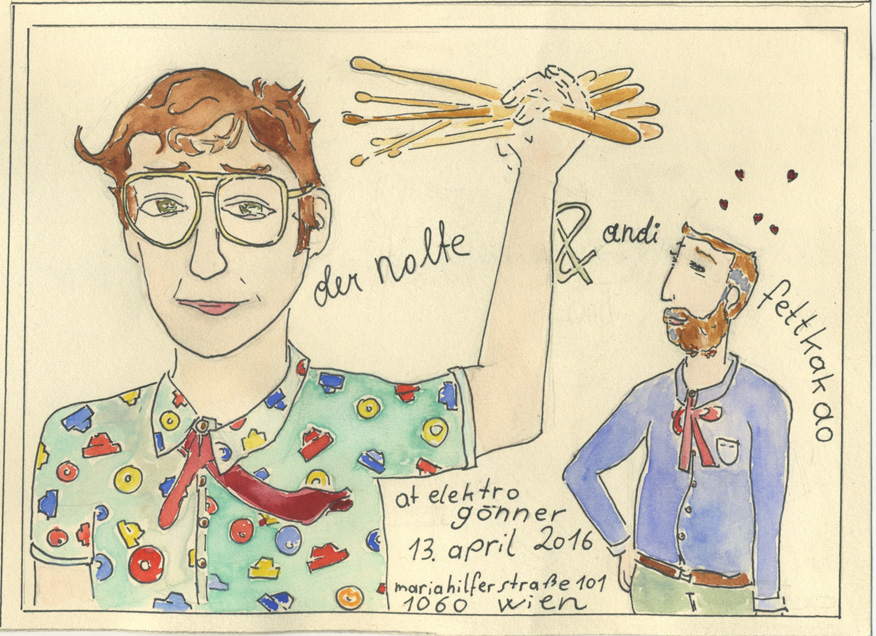 der nolte
& andi
fettkakao
at elektro
gönner
13. april 2016
mariahilferstraße 101
1060 wien